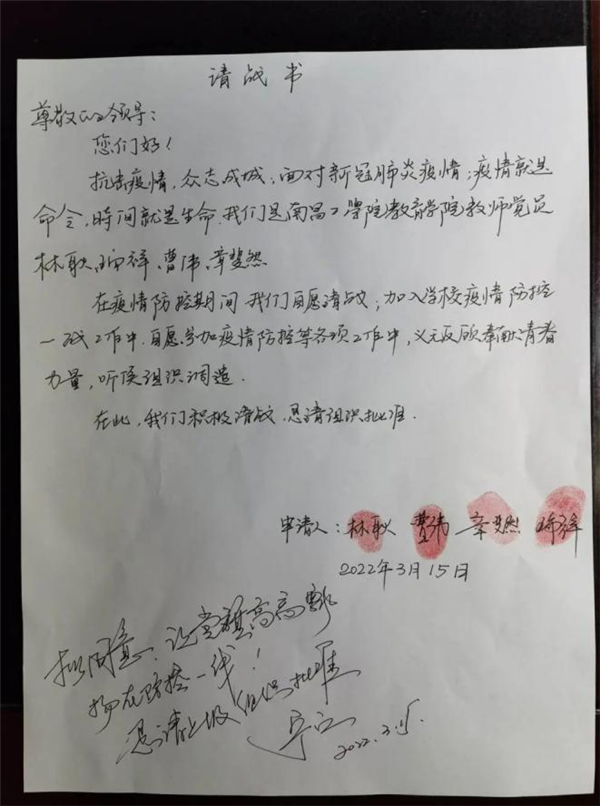 请战书
尊敬的领导：
您们好！
抗击疫情，众志成城；面对新冠肺炎疫情；疫情就是
命令，时间就是生命．我们是南昌工学院教育学院教师党员
林耿、祥、曹伟、章斐然
在疫情防控期间 我们自愿请战；加入学校疫情防控
一线工作中．自愿参加疫情防控等各项工作中，义无反顾奉献青春
力量，听候组织调遣．
在此，我们积极请战．恳请组织批准．
申请人：林耿 曹伟 章斐然 祥
2022年3月15日
拟同意，让党旗高高飘
扬在防控一线！
恳请上级组织批准
2022.3.15.